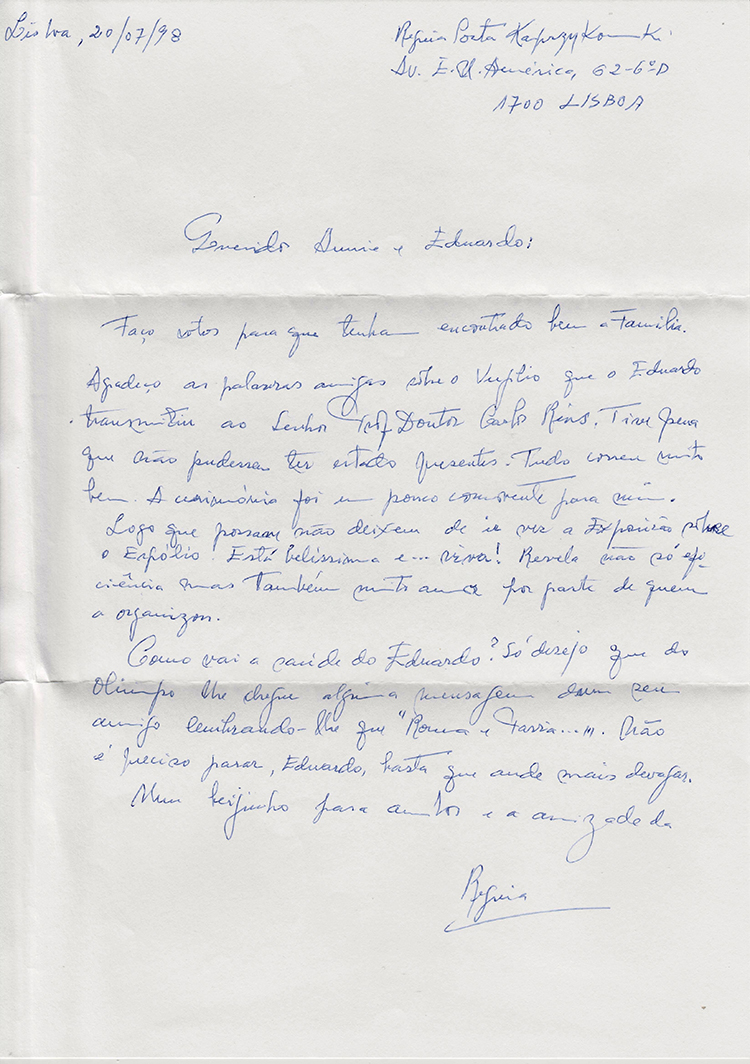 Lisboa, 20/07/98
Regina Kasprzykowski
Av. E. U. América, 62-6º D
1700 LISBOA
Querido Annie e Eduardo:
Faço votos para que tenham encontrado bem a Família.
Agradeço as palavras amigas sôbre o Vergílio que o Eduardo
transmitiu ao Senhor Prof Doutor Carlos Reis. Tive pena
que não pudessem ter estado presentes. Tudo correu muito
bem. A cerimónia foi um pouco comovente para mim.
Logo que possam não deixem de ir ver a Exposição sôbre
o Espólio. Está belíssima e... viva! Revela não só efi-
ciência mas também muito amor por parte de quem
a organizou.
Como vai a saúde do Eduardo? Só desejo que do
Olimpo lhe chegue alguma mensagem dum seu
amigo lembrando-lhe que "Roma e Pavia...". Não
é preciso parar, Eduardo, basta que ande mais devagar.
Num beijinho para ambos e a amizade da
Regina